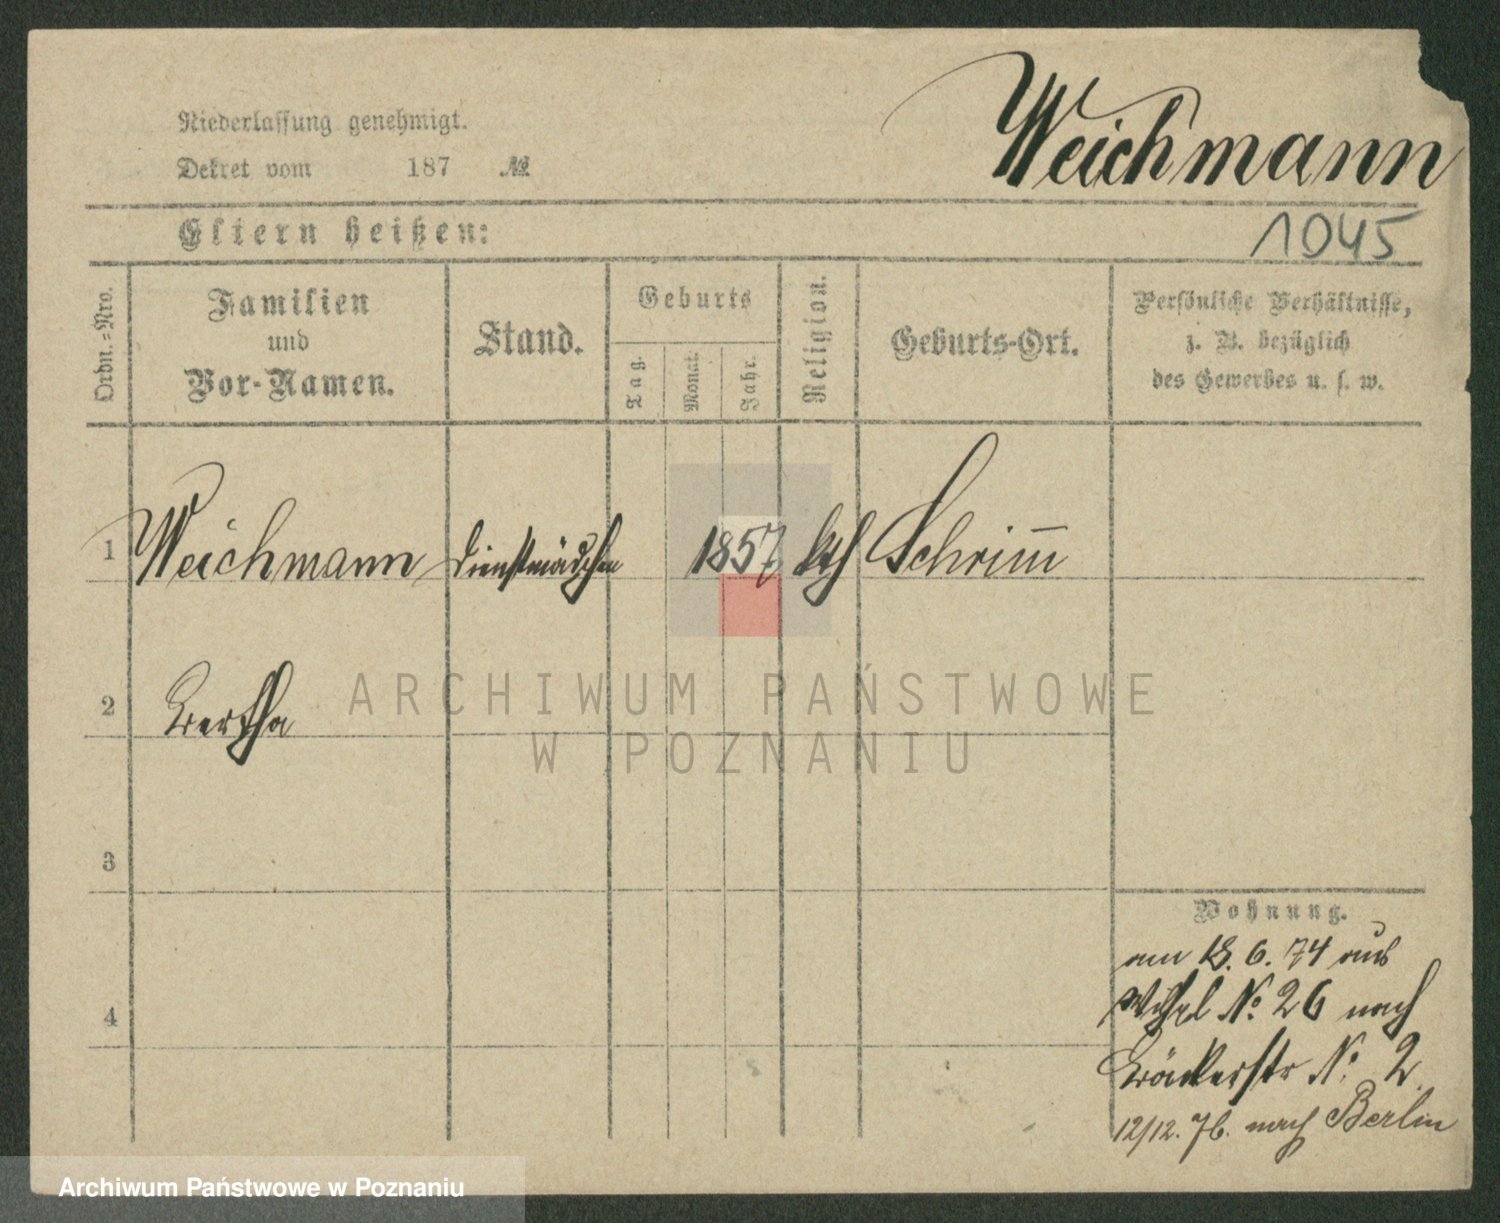 Weichmann
Niederlassung genehmigt.
Dekret vom 187 №
1045
Eltern heißen:
Ordn.-Nro.
Familien
und
Vor-Namen.
Stand.
Geburts
Tag.
Monat.
Jahr.
Religion.
Geburts-Ort.
Persönliche Verhältnisse,
z. B. bezüglich
des Gewerbes u. s. w.
1 Weichmann Dienstmädchen 1857 kth Schrimm
2 Bertha
3
4
Wohnung.
am 18. 6. 74 aus
No. 26 nach
Bäckerstr No. 2.
12/12. 76. nach Berlin
ARCHIWUM PAŃSTWOWE
W POZNANIU
Archiwum Państwowe w Poznaniu